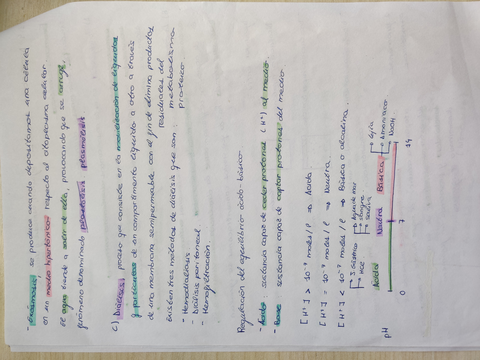 - exósmosis; se produce cuando depositamos una célula
en un medio hipertónico respecto al citoplasma celular
El agua tiende a salir de ella, provocando que se arrugue,
fenómeno denominado plasmólisis
c) Diálisis; proceso que consiste en la movilización de líquidos
y partículas de un compartimento líquido a otro a través
de una membrana semipermeable con el fin de eliminar productos
residuales del metabolismo
proteico
Existen tres métodos de diálisis que son:
- Hemodiálisis
- Diálisis peritoneal
- Hemofiltración
Regulación del equilibrio ácido-básico
- Ácido: sustancia capaz de ceder protones (H+) al medio.
- Base: sustancia capaz de captar protones del medio
[H+] > 10-7 moles/l ⇒ Ácida
[H+] = 10-7 moles/l ⇒ Neutra
[H+] < 10-7 moles/l ⇒ Básica o alcalina
J. Gástrico
HCl
Agua de mar
Sangre
lejía
Amoníaco
NaOH
pH
Ácida
Neutra
Básica
0
7
14